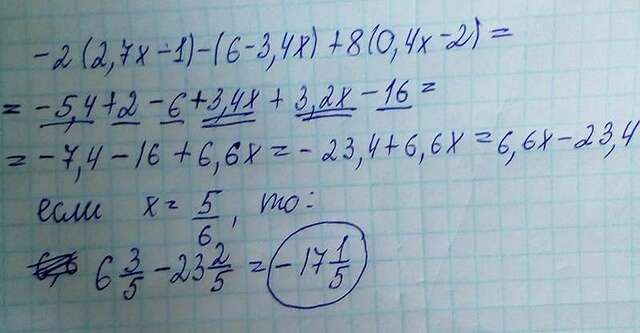 -2(2,7x-1)-(6-3,4x)+8(0,4x-2)=
=-5,4+2-6+3,4x+3,2x-16=
=-7,4-16+6,6x=-23,4+6,6x=6,6x-23,4
если x=5/6, то:
6 3/5-23 2/5=-17 1/5